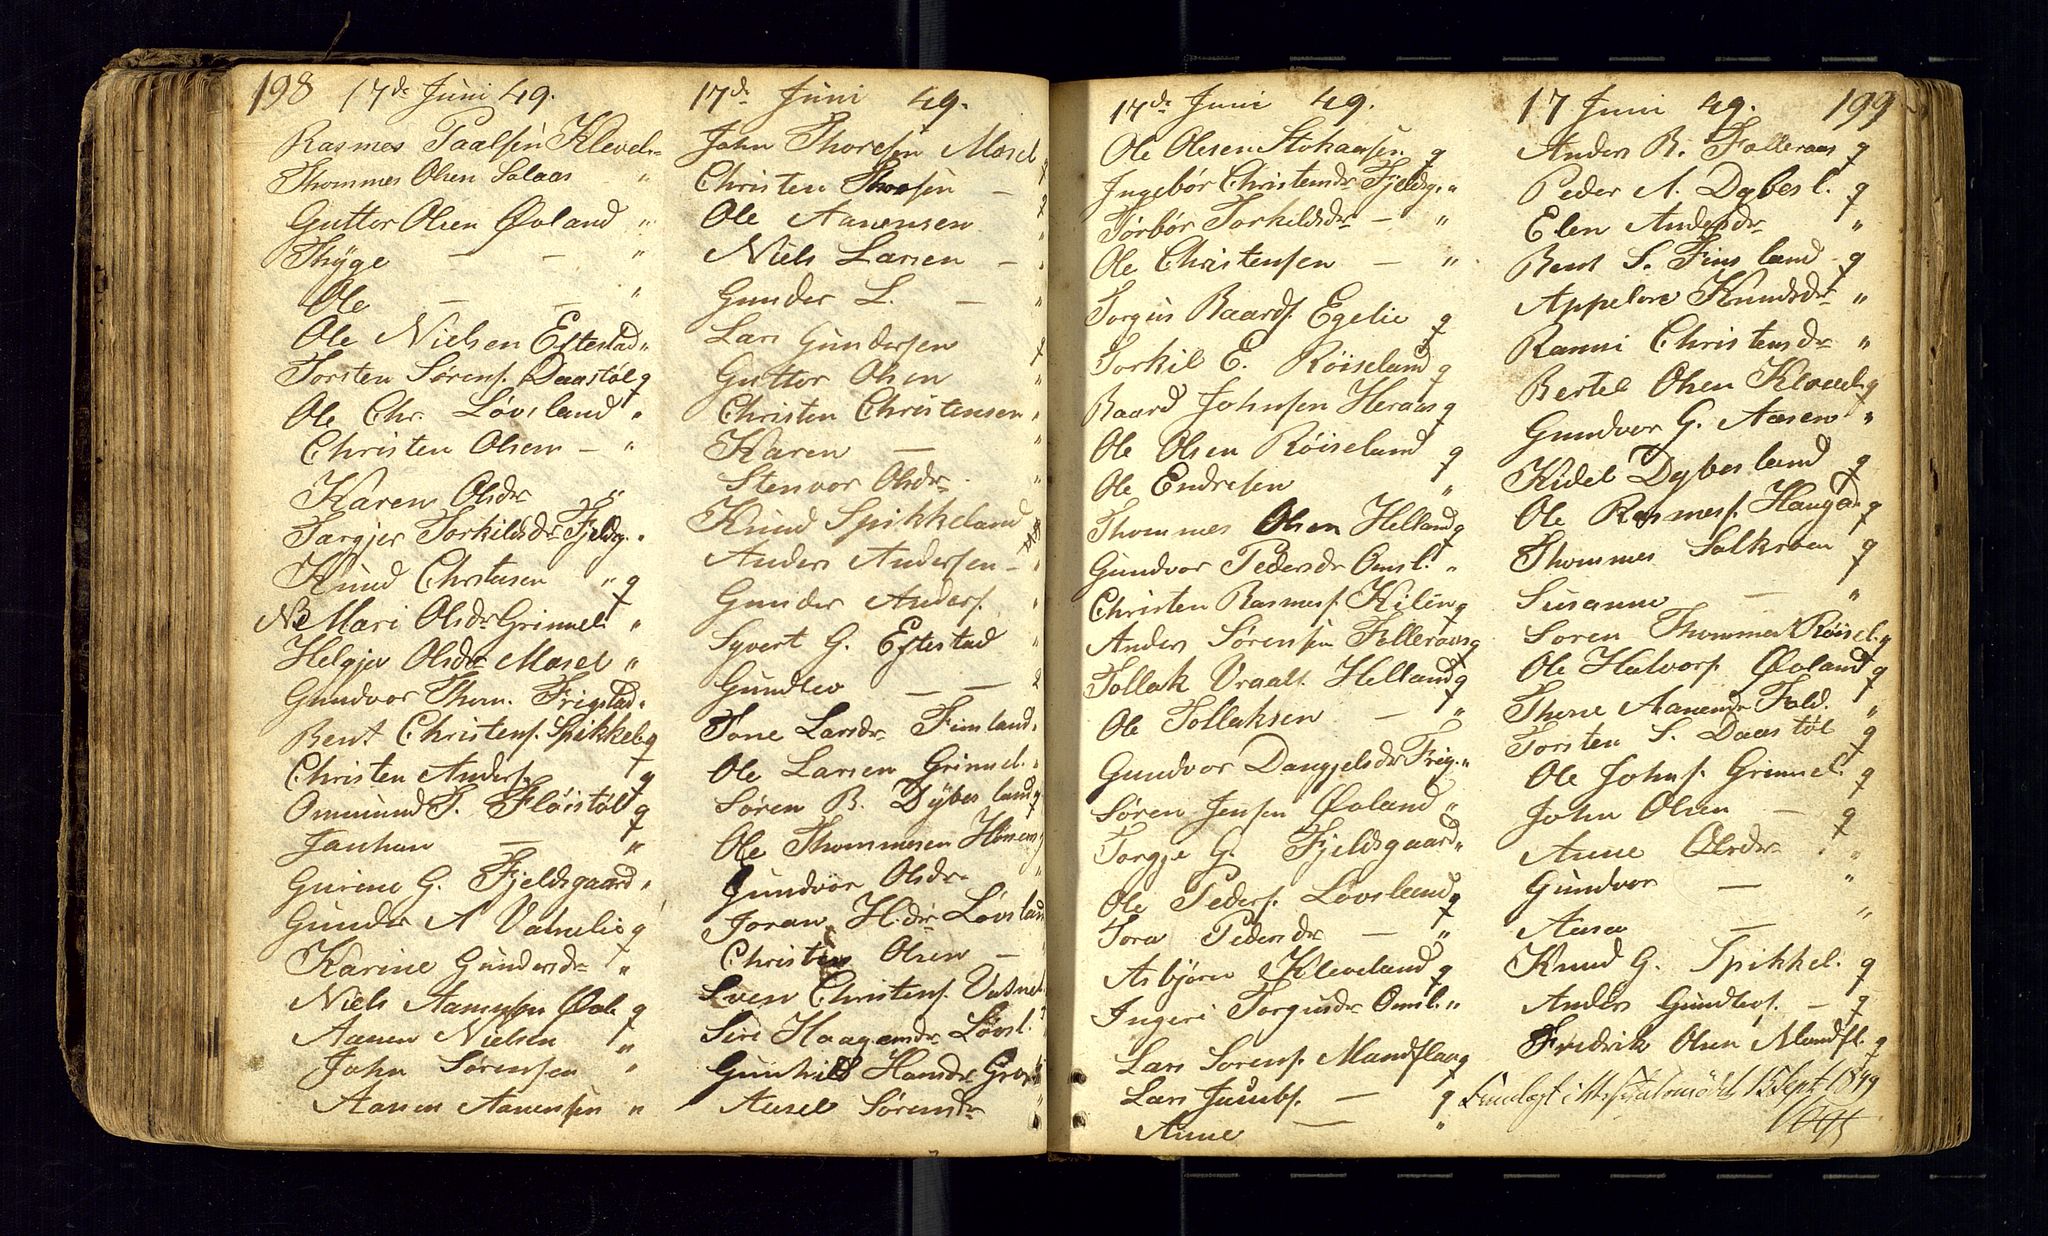 198
17de Juni 49.
Rasmos Paalsen Klevel.
Thommes Olsen Salaas "
Guttor Olsen Øvland "
Thÿge — — "
Ole — — "
Ole Nielsen Eftestad "
Torsten Sørens. Daastøl q
Ole Chr. Løvsland "
Christen Olsen — "
Karen Olsdr "
Targjer Torkildsdr Fjeldsg. "
Knud Christensen " q
NB Mari Olsdr Grimel. "
Helgjer Olsdr Mosel "
Gundvor Thom. Frigstad "
Bent Christens. Spikkel. q
Christen Anders. q
Ommund T. Fløistøl q
— "
Gurine G. Fjeldsgaard "
Gunder A Vatnelie q
Karine Gundersdr "
Niels Aanensen Øvl. q
Aanen Nielsen "
John Sørensen "
Aanen Aanensen "
17de Juni 49.
John Thoresen Mosel q
Christen Thorsen — q
Ole Aanensen "
Niels Larsen — "
Gunder L. — "
Lars Gundersen q
Guttor Olsen "
Christen Christensen "
Karen — "
Stenvor Olsdr "
Knud Spikkeland
Anders Andersen — "
Gunder Anders. "
Syvert G. Eftestad "
Gundlev — — 2
Tone Larsdr Finsland "
Ole Larsen Grimel. "
Søren B. Dÿbesland q
Ole Thommesen
Gundvor Olsdr "
Joran H.dr Løvsland
Christen Olsen —
Sven Christens. Vatnel
Siri Haagensdr Løvsl.
Gunhild Hansdr
Aasel Sørensdr
17de Juni 49.
Ole Olesen q
Ingebor Christensdr Fjeldsg. "
Tørbør Torkildsdr — "
Ole Christensen — "
Torgius Baards. Egelie q
Torkil E. Røiseland q
Baard Johnsen Heraas q
Ole Olsen Røiseland q
Ole Endresen "
Thommes Olsen Helland q
Gundvor Pedersdr Omsl. "
Christen Rasmes. Kilen q
Anders Sørensen Folleraas q
Tollak Vraals. Helland q
Ole Tollaksen — "
Gundvor Danjelsdr Frig. "
Søren Jensen Øvland "
Torgje G. Fjeldsgaard "
Ole Peders. Løvsland q
Tora Pedersdr — "
Asbjørn Kleveland q
Ingeri Torgiusdr Omsl. "
Lars Sørens. Mandflaa q
Lars Jacobs. — q
Anne — "
17 Juni 49.
199
Anders B. Folleraas q
Peder A. Dybesl. q
Elen Andersdr "
Bent S. Finsland q
Appelone Knudsdr "
Ranni Christensdr "
Bertel Olsen Klevel. q
Gundvor G. Aasen "
Kidel Dybesland q
Ole Rasmes. Haugan q
Thommes q
Susanne — "
Soren Thommes. Røisel. q
Ole Halvors. Øvland q
Thone Aanensdr "
Torsten S. Daastøl q
Ole Johns. Grimel. q
John Olsen — q
Anne Olsdr "
Gundvor — "
Aasa — "
Knud G. Spikkel. q
Anders Gundlevs. — q
Fredrik Olsen Mandfl. q
15 Sept. 1849